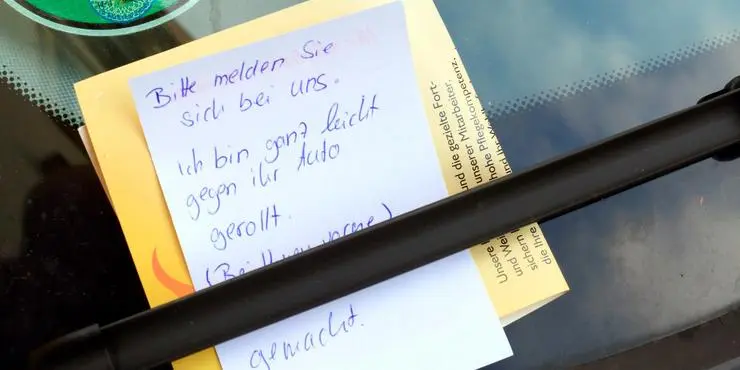 Bitte melden Sie
sich bei uns.
Ich bin ganz leicht
gegen ihr Auto
gerollt.
gemacht.
und die gezielte Fort-
unserer Mitarbeiter,
hohe Pflegekompetenz.
Unsere
und Wei
sichern
die Ihre